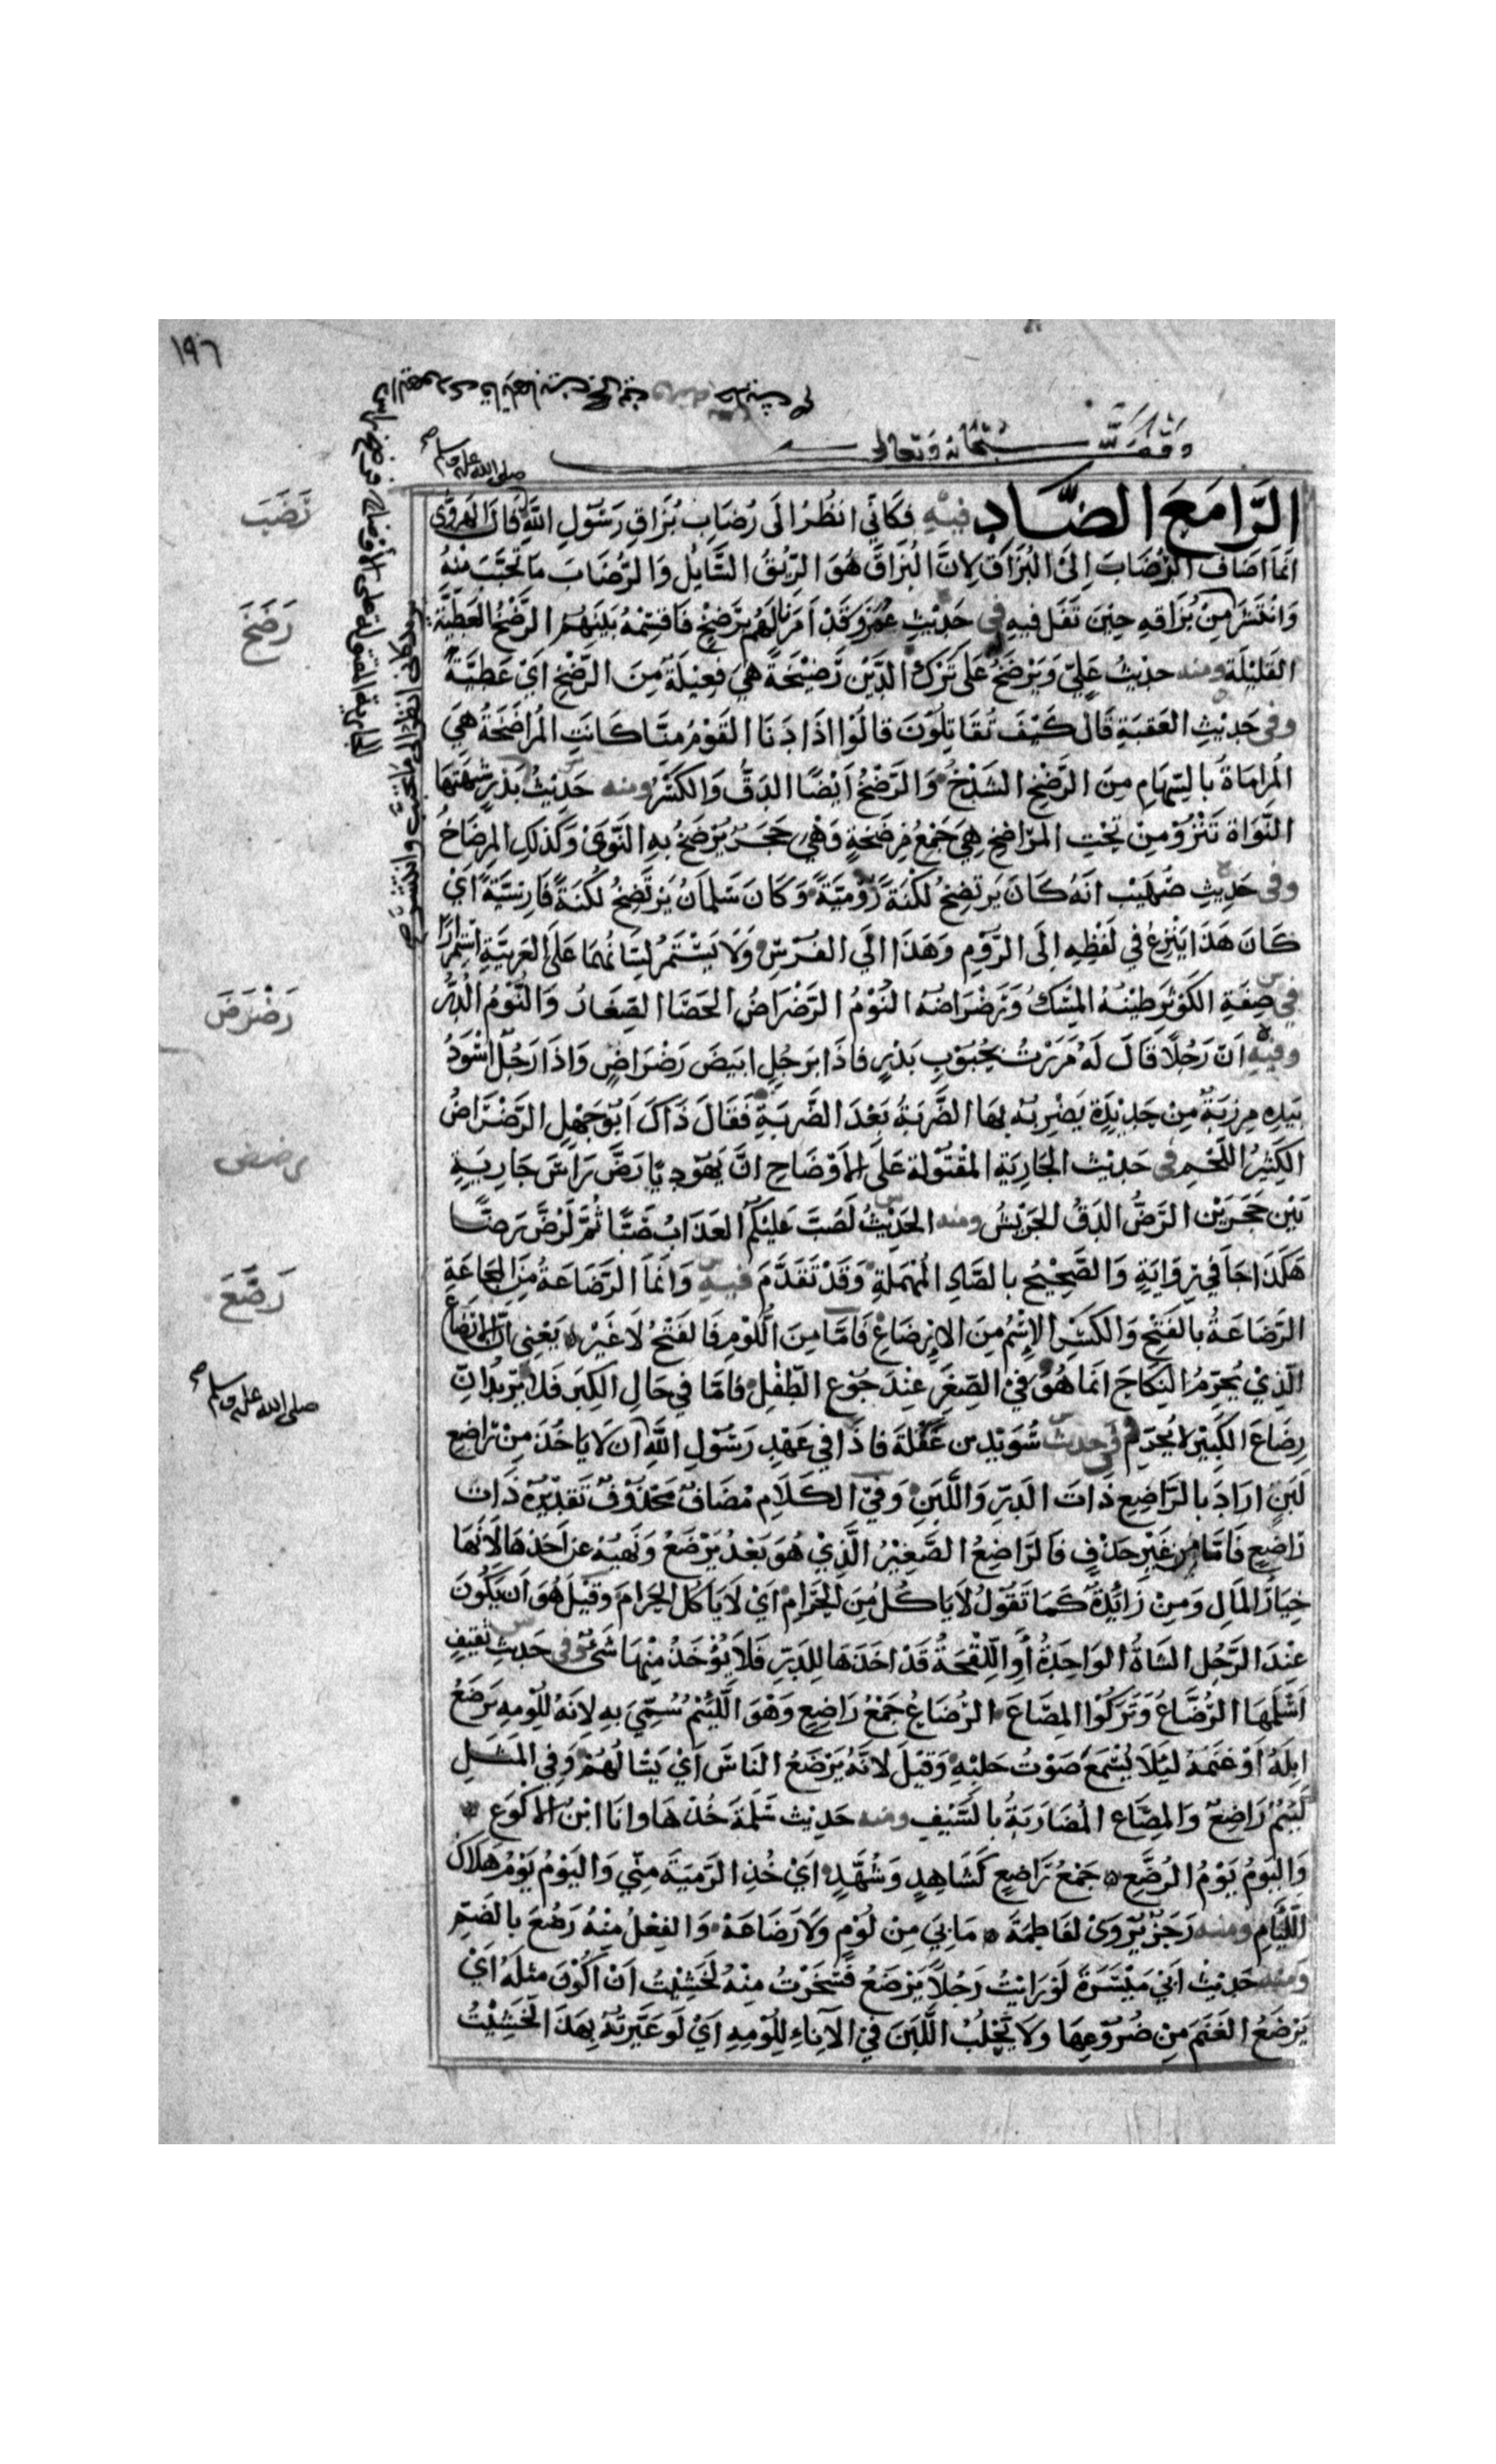 ١٩٦
وقف لله سبحانه وتعالى
صلى الله عليه وسلم
الرا مع الضاد فيه فكاني انظر الى رضاب بزاق رسول الله قال الهروي
انما اضاف الرضاب الى البزاق لان البزاق هو الريق السايل والرضاب ما تحبب منه
وانتشر من بزاقه حين تفل فيه في حديث عمر وقد امرنا لهم برضخ فاقسمه بينهم الرضخ العطية
القليلة ومنه حديث علي ويرضخ على ترك الدين رضيخة هي فعيلة من الرضخ اي عطية
وفي حديث العقبة قال كيف تقاتلون قالوا اذا دنا القوم منا كانت المراضخة هي
المراماة بالسهام من الرضخ الشدخ والرضخ ايضا الدق والكسر ومنه حديث بدر شبهتها
النواة تنزو من تحت المراضخ هي جمع مرضخة وهي حجر يرضخ به النوى وكذلك المرضاخ
وفي حديث صهيب انه كان يرتضخ لكنة رومية وكان سلمان يرتضخ لكنة فارسية اي
كان هذا ينزع في لفظه الى الروم وهذا الى الفرس ولا يستمر لسانهما على العربية استمرارا
في صفة الكوثر طينه المسك ورضراضه التوم الرضراض الحصا الصغار والتوم الدر
وفيه ان رجلا قال له مررت بجبوب بدر فاذا برجل ابيض رضراض واذا رجل اسود
بيده مرزبة من حديدة يضربه بها الضربة بعد الضربة فقال ذاك ابو جهل الرضراض
الكثير اللحم في حديث الجارية المقتولة على الاوضاح ان يهوديا رض راس جارية
بين حجرين الرض الدق الجريش ومنه الحديث لصب عليكم العذاب صبا ثم لرض رضا
هكذا جا في رواية والصحيح بالصاد المهملة وقد تقدم فيه وانما الرضاعة من المجاعة
الرضاعة بالفتح والكسر الاسم من الارضاع فاما من اللوم فالفتح لا غير يعني ان الارضاع
الذي يحرم النكاح انما هو في الصغر عند جوع الطفل فاما في حال الكبر فلا يريد ان
رضاع الكبير لا يحرم في حديث سويد بن غفلة فاذا في عهد رسول الله ان لا ياخذ من راضع
لبن اراد بالراضع ذات الدر واللبن وفي الكلام مضاف محذوف تقديره ذات
راضع فاما من غير حذف فالراضع الصغير الذي هو بعد يرضع ونهيه عن اخذها لانها
خيار المال ومن زائدة كما تقول لا ياكل من الحرام اي لا ياكل الحرام وقيل هو ان يكون
عند الرجل الشاة الواحدة أو اللقحة قد اخذها للدر فلا يؤخذ منها شئ وفي حديث ثقيف
اسلمها الرضاع وتركوا المصاع الرضاع جمع راضع وهو اللئيم سمي به لانه للومه يرضع
ابله او غنمه ليلا يسمع صوت حلبه وقيل لانه يرضع الناس اي يسالهم وفي المثل
لئيم راضع والمصاع المضاربة بالسيف ومنه حديث سلمة خذها وانا ابن الاكوع
واليوم يوم الرضع جمع راضع كشاهد وشهد اي خذ الرمية مني واليوم يوم هلاك
اللئام ومنه رجز يروى لفاطمة ما بي من لوم ولا رضاعة والفعل منه رضع بالضم
ومنه حديث ابي ميسرة لو رايت رجلا يرضع فسخرت منه لخشيت ان اكون مثله اي
يرضع الغنم من ضروعها ولا يحلب اللبن في الاناء للومه اي لو عيرته بهذا لخشيت
رضب
رضخ
رضرض
رضض
رضع
صلى الله عليه وسلم